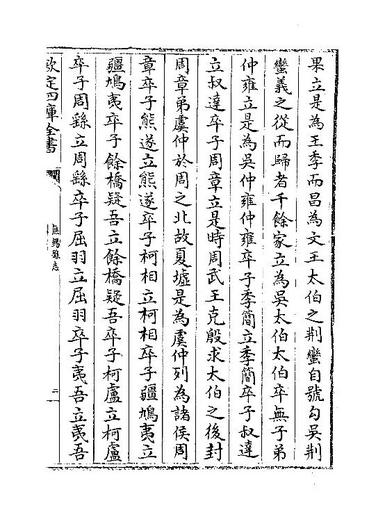 果立是為王季而昌為文王太伯之荆蠻自號勾吳荆
蠻義之從而歸者千餘家立為吳太伯太伯卒無子弟
仲雍立是為吳仲雍仲雍卒子季簡立季簡卒子叔達
立叔達卒子周章立是時周武王克殷求太伯之後封
周章弟虞仲於周之北故夏墟是為虞仲列為諸侯周
章卒子熊遂立熊遂卒子柯相立柯相卒子疆鳩夷立
疆鳩夷卒子餘橋疑吾立餘橋疑吾卒子柯盧立柯盧
卒子周繇立周繇卒子屈羽立屈羽卒子夷吾立夷吾
欽定四庫全書
無錫縣志